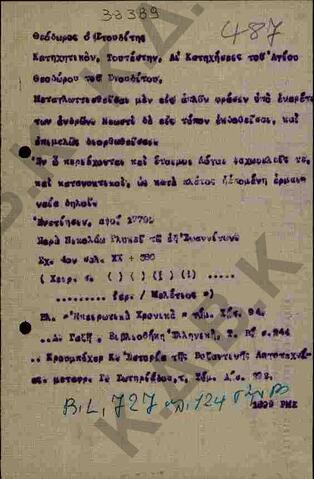 38389
487
Θεόδωρος ὁ Στουδίτης
Κατηχητικὸν, Τουτέστην, Αἱ Κατηχήσεις τοῦ Ἁγίου
Θεοδώρου τοῦ Στουδίτου,
Μεταγλωττισθεῖσαι μὲν εἰς ἁπλῆν φράσιν ὑπὸ ἐναρέτου
ἀνδρῶν Νεωστὶ δὲ εἰς τύπον ἐκδοθεῖσαι, καὶ
ἐπιμελῶς διορθωθεῖσαι
Ἐν ᾧ περιέχονται καὶ ἕτεροι Λόγοι ψυχωφελεῖς τε,
καὶ κατανυκτικοὶ, ὡς κατὰ πλάτος ἑπομένη ἑρμη-
νεία δηλοῖ
Ἐνετίῃσιν, αψο΄ 1770
Παρὰ Νικολάῳ Γλυκεῖ τῷ ἐξ Ἰωαννίνων
Σχ. 4ον σελ. ΧΧ + 380
( Χειρ. σ. ( ) ( ) ( ) ( ) .....
......... ἱερ./ Μελέτιος )
Βλ. "Ἠπειρωτικὰ Χρονικὰ" τόμ. σ. 94.
..Α. Γαζῆ , Βιβλιοθήκη Ἑλληνικὴ, Τ. Β, σ.244
.. Κρουμπάχερ Κ. Ἱστορία τῆς Βυζαντινῆς Λογοτεχνίας
μεταφρ. Γ. Σωτηριάδου, τ. Τόμ. Α, σ.
B.L, 727 124
ΚΑΒΚ